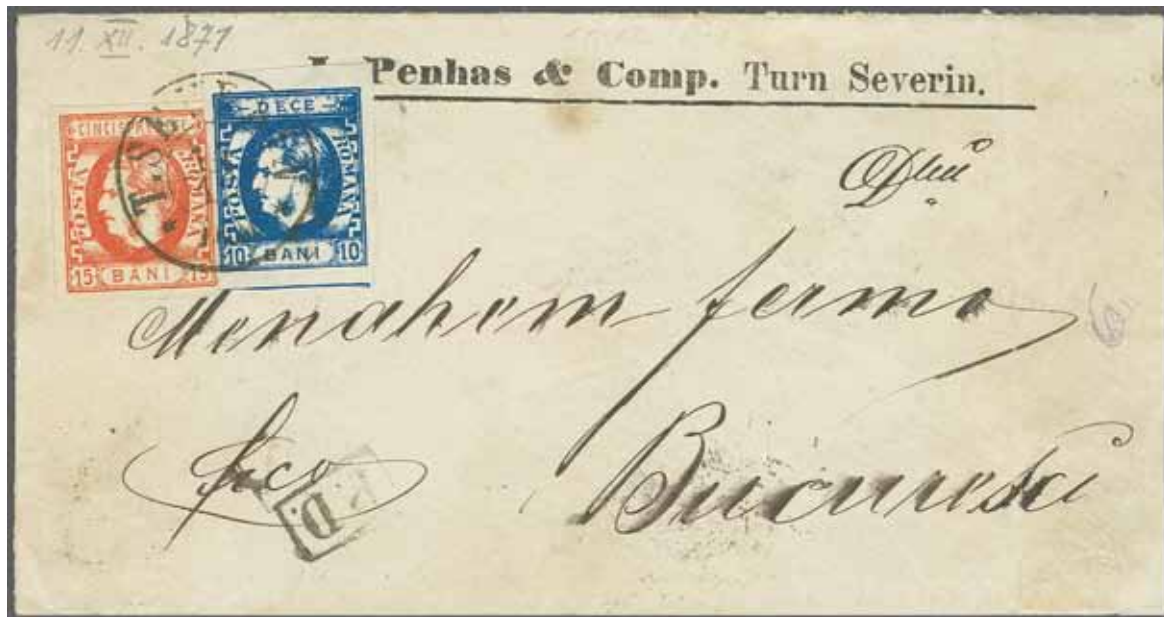 11. XII. 1871
Penhas & Comp. Turn Severin.
CINCISPREDECE
POSTA
ROMANA
15 BANI 15
DECE
POSTA
ROMANA
10 BANI 10
T. SEVERIN
Dlui
Menahem fermo
fco
P.D.
Bucuresci